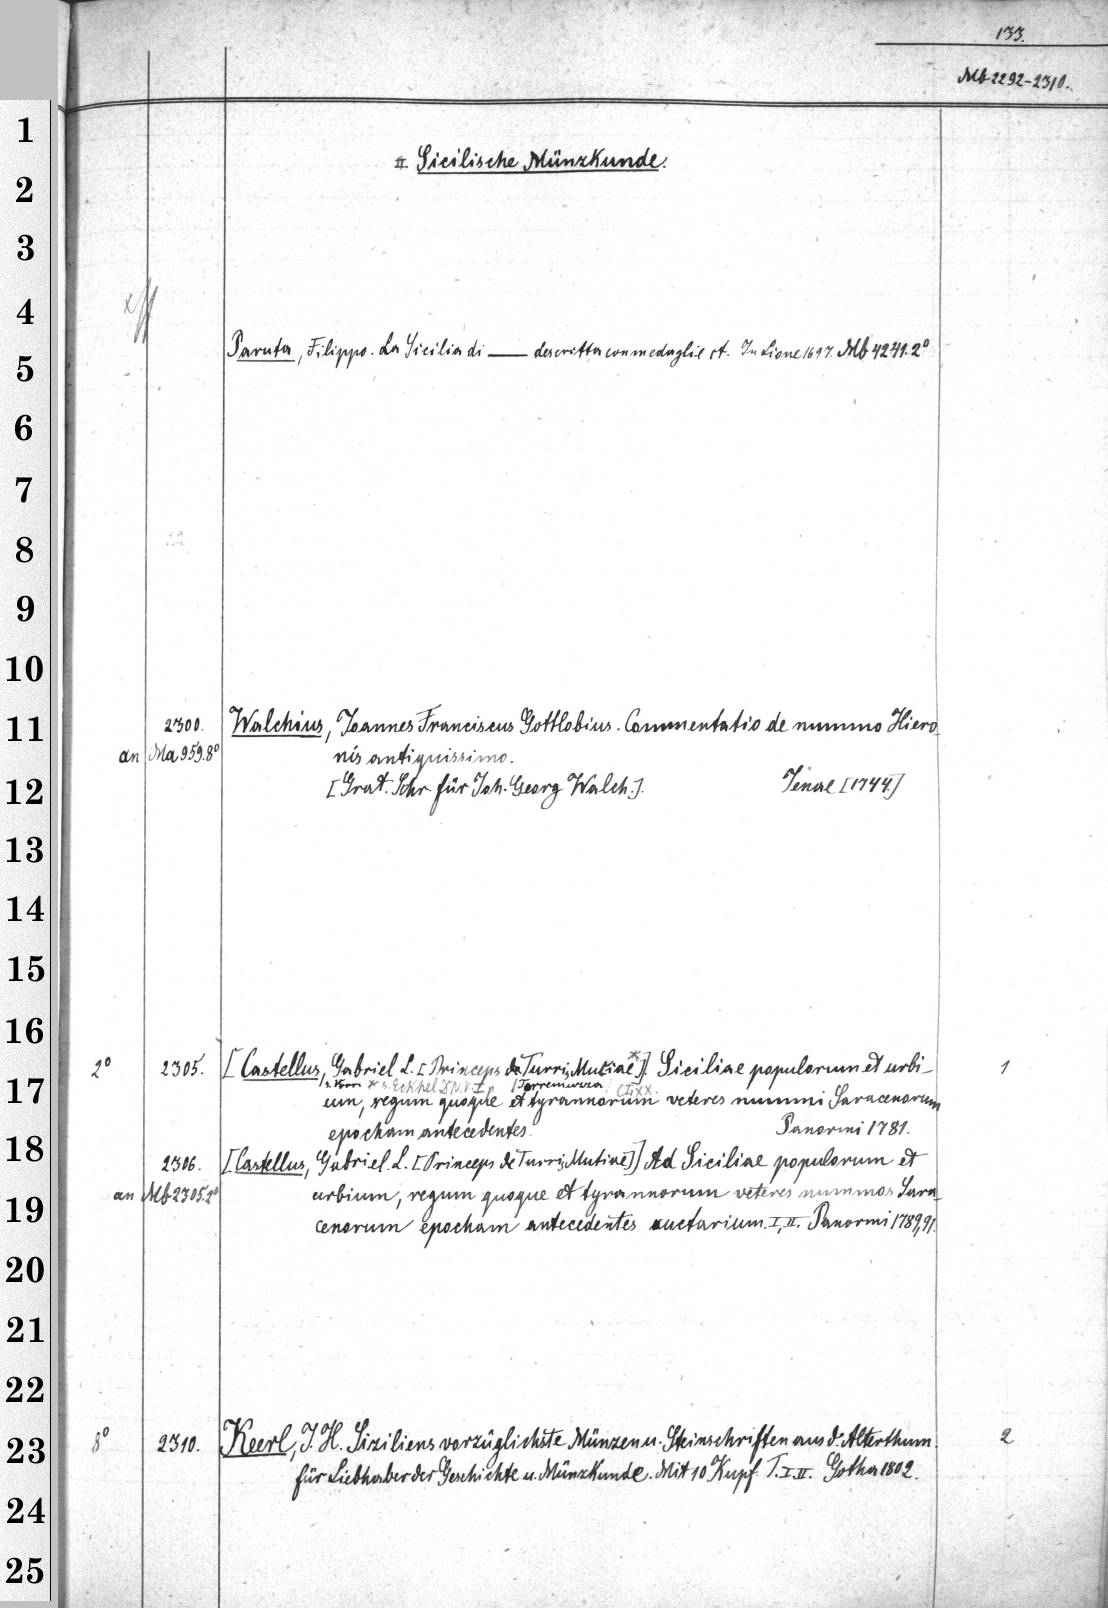 133.
Mb 2292-2310.
II. Sicilische Münzkunde.
Paruta, Filippo. La Sicilia di —— descritta con medaglie et. In Lione 1697. Mb 4241. 2°
2300. Walchius, Joannes Franciscus Gottlobius. Commentatio de nummo Hiero-
an Ma 959. 8° nis antiquissimo.
[Grat. Schr. für Joh. Georg Walch.]. Jenae [1744.]
2° 2305. [Castellus, Gabriel L. [Princeps de Turri, Mutiae*]]. Siciliae populorum et urbi- 1
* s. Eckhel D.N.V. I (Torremuzza)
um, regum quoque et tyrannorum veteres nummi Saracenorum
epocham antecedentes. Panormi 1781.
2306. [Castellus, Gabriel. L. [Princeps de Turri, Mutiae]] Ad Siciliae populorum et
an Mb 2305. 2° urbium, regum quoque et tyrannorum veteres nummos Sara-
cenorum epocham antecedentes auctarium. I, II. Panormi 1789, 91.
8° 2310. Keerl, J. H. Siziliens vorzüglichste Münzen u. Steinschriften aus d. Alterthum. 2
für Liebhaber der Geschichte u. Münzkunde. Mit 10 Kupf. T. I. II. Gotha 1802.
1
2
3
4
5
6
7
8
9
10
11
12
13
14
15
16
17
18
19
20
21
22
23
24
25